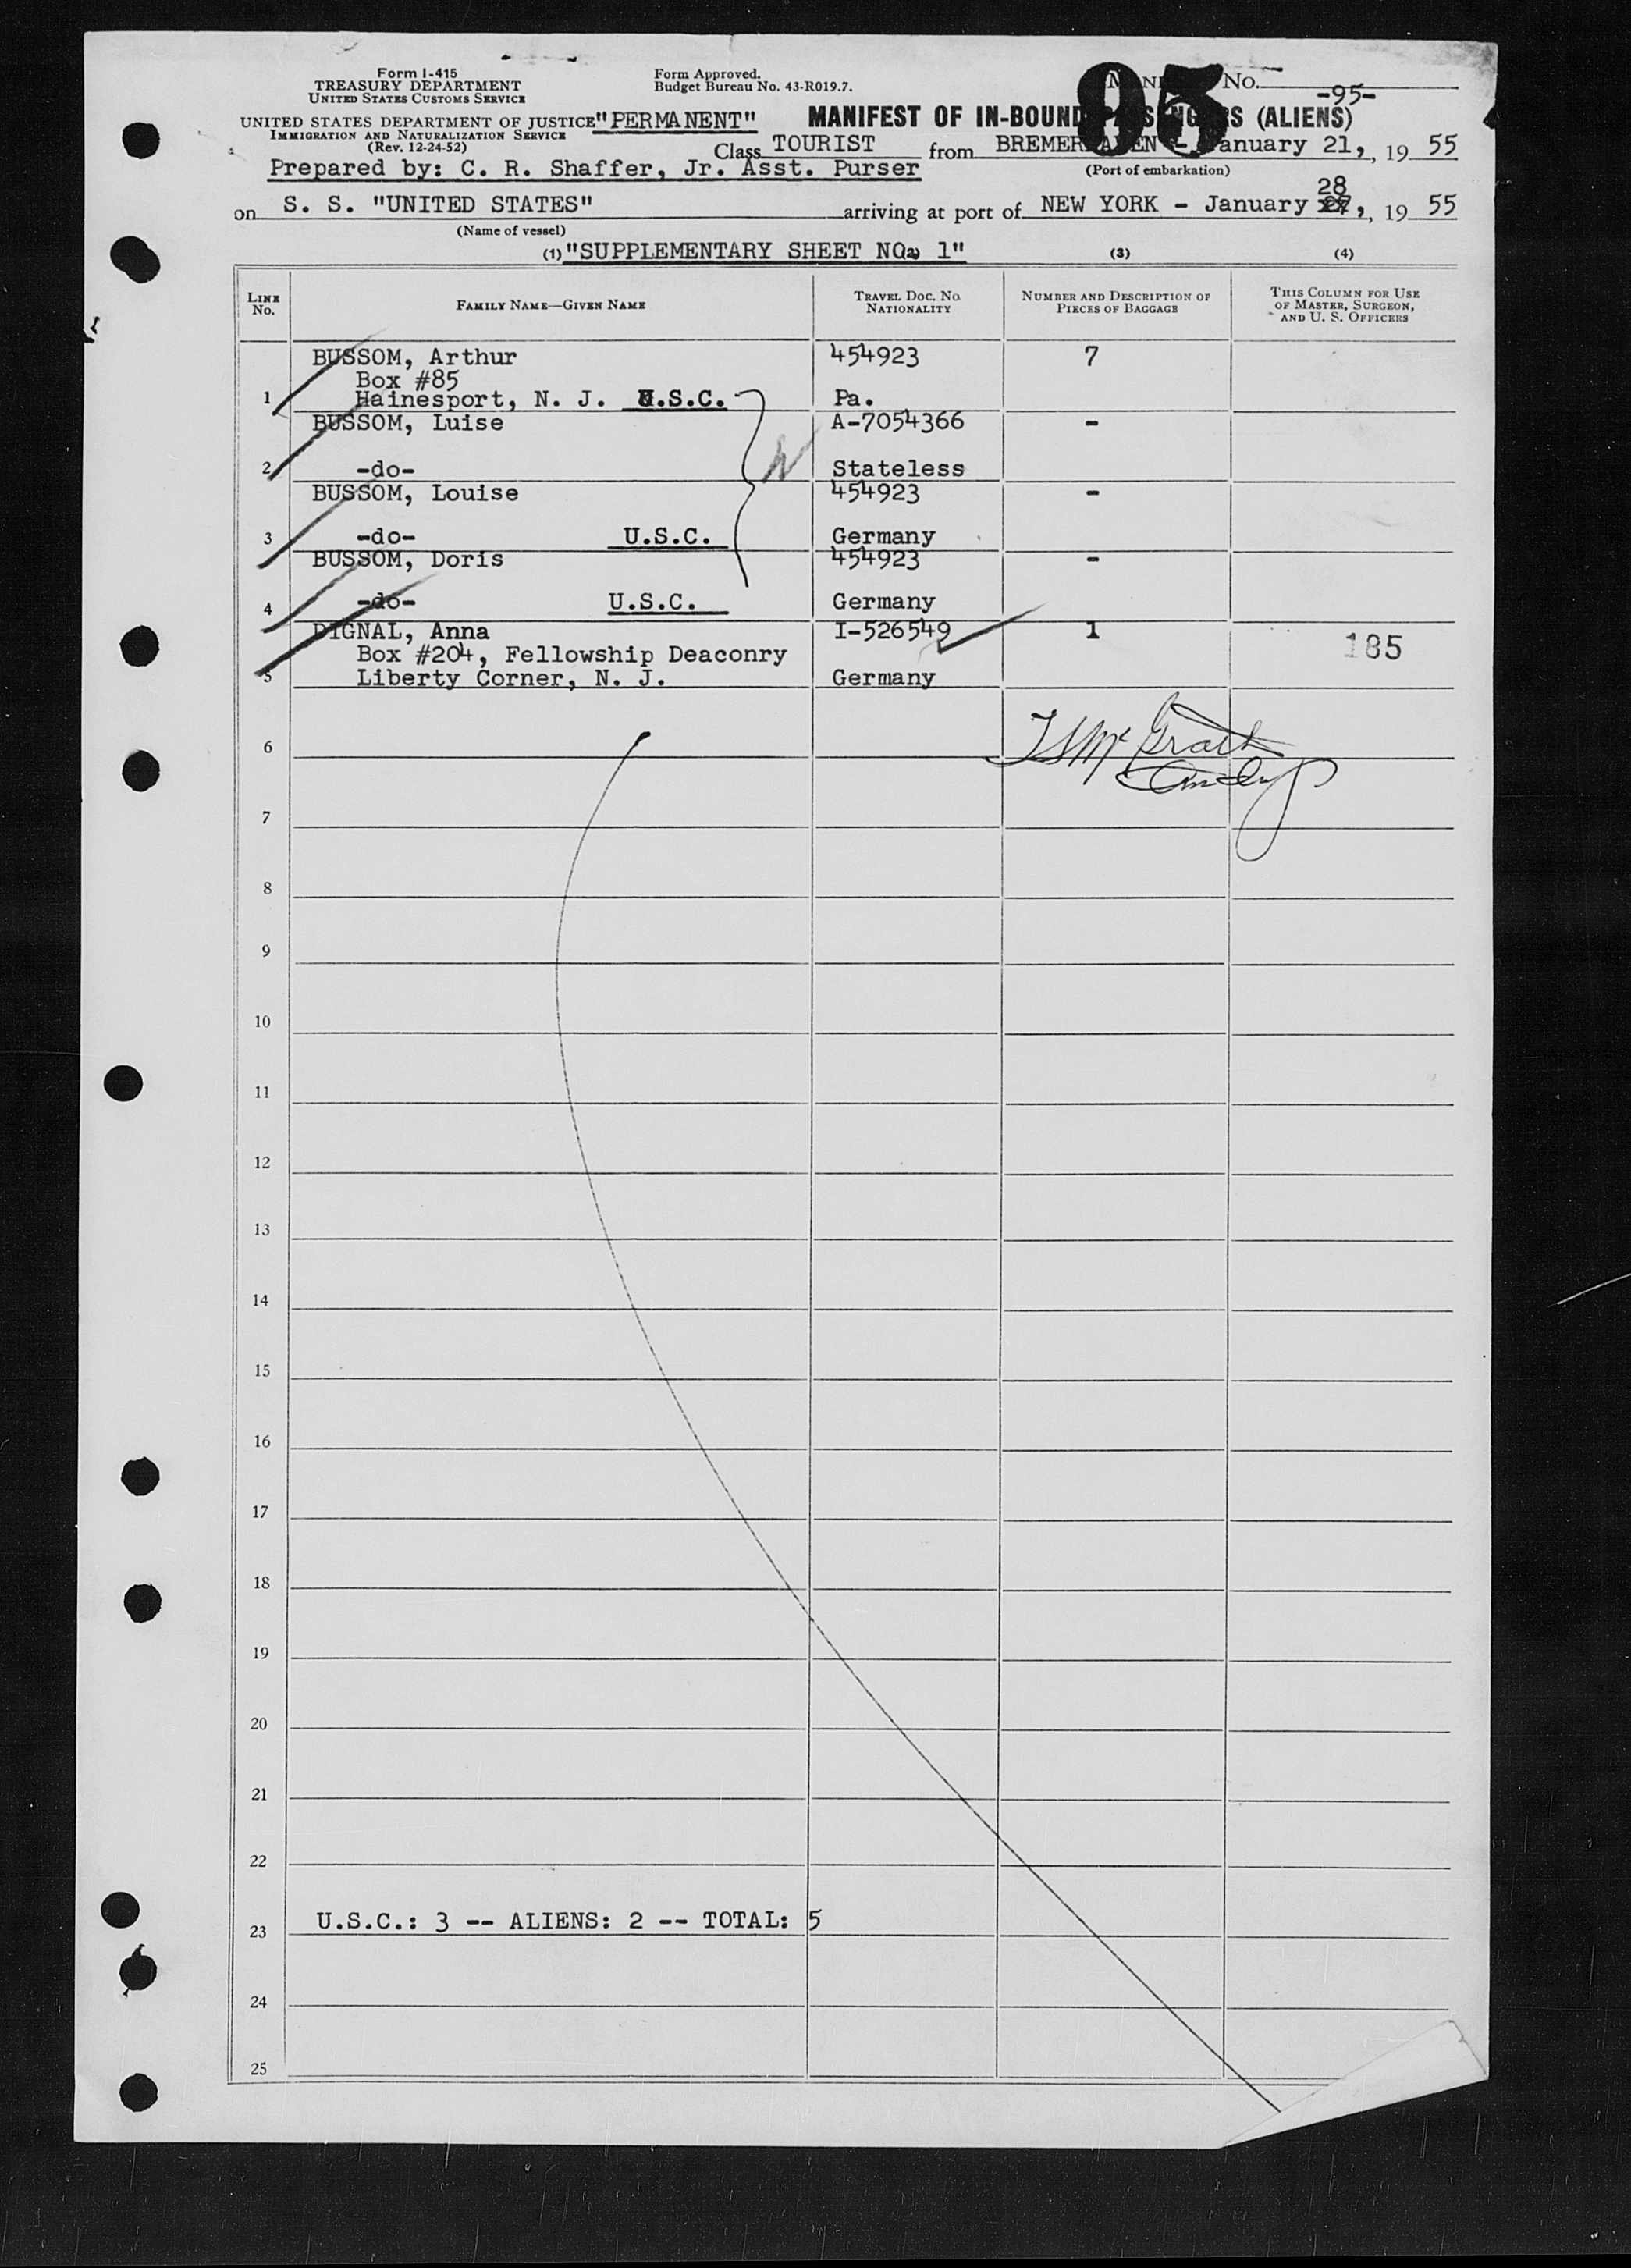 Form I-415
TREASURY DEPARTMENT
UNITED STATES CUSTOMS SERVICE
Form Approved.
Budget Bureau No. 43-R019.7.
No.
-95-
95
UNITED STATES DEPARTMENT OF JUSTICE "PERMANENT" MANIFEST OF IN-BOUND PASSENGERS (ALIENS)
IMMIGRATION AND NATURALIZATION SERVICE
(Rev. 12-24-52)
Class TOURIST from BREMERHAVEN - January 21, , 19 55
Prepared by: C. R. Shaffer, Jr. Asst. Purser
(Port of embarkation)
28
on S. S. "UNITED STATES" arriving at port of NEW YORK - January 27, , 19 55
(Name of vessel)
(1) "SUPPLEMENTARY SHEET NO. 1" (3) (4)
LINE No. FAMILY NAME—GIVEN NAME TRAVEL DOC. NO. NATIONALITY NUMBER AND DESCRIPTION OF PIECES OF BAGGAGE THIS COLUMN FOR USE OF MASTER, SURGEON, AND U. S. OFFICERS
BUSSOM, Arthur 454923 7
Box #85
1 Hainesport, N. J. U.S.C. Pa.
BUSSOM, Luise A-7054366 -
2 -do- Stateless
BUSSOM, Louise 454923 -
3 -do- U.S.C. Germany
BUSSOM, Doris 454923 -
4 -do- U.S.C. Germany
DIGNAL, Anna I-526549 1
Box #204, Fellowship Deaconry 185
5 Liberty Corner, N. J. Germany
McGrath
6
7
8
9
10
11
12
13
14
15
16
17
18
19
20
21
22
23 U.S.C.: 3 -- ALIENS: 2 -- TOTAL: 5
24
25